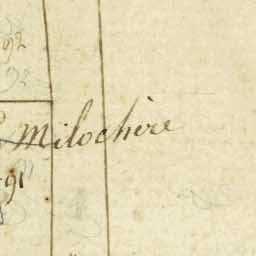 92
Milochère
91